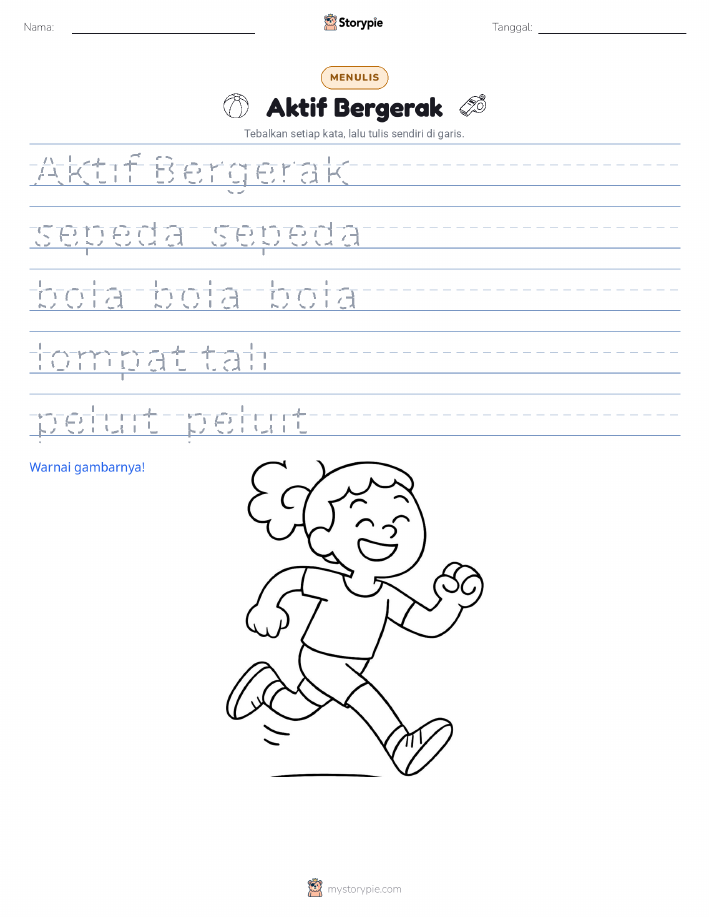 Nama:
Storypie
Tanggal:
MENULIS
Aktif Bergerak
Tebalkan setiap kata, lalu tulis sendiri di garis.
Aktif Bergerak
sepeda sepeda
bola bola bola
lompat tali
peluit peluit
Warnai gambarnya!
mystorypie.com